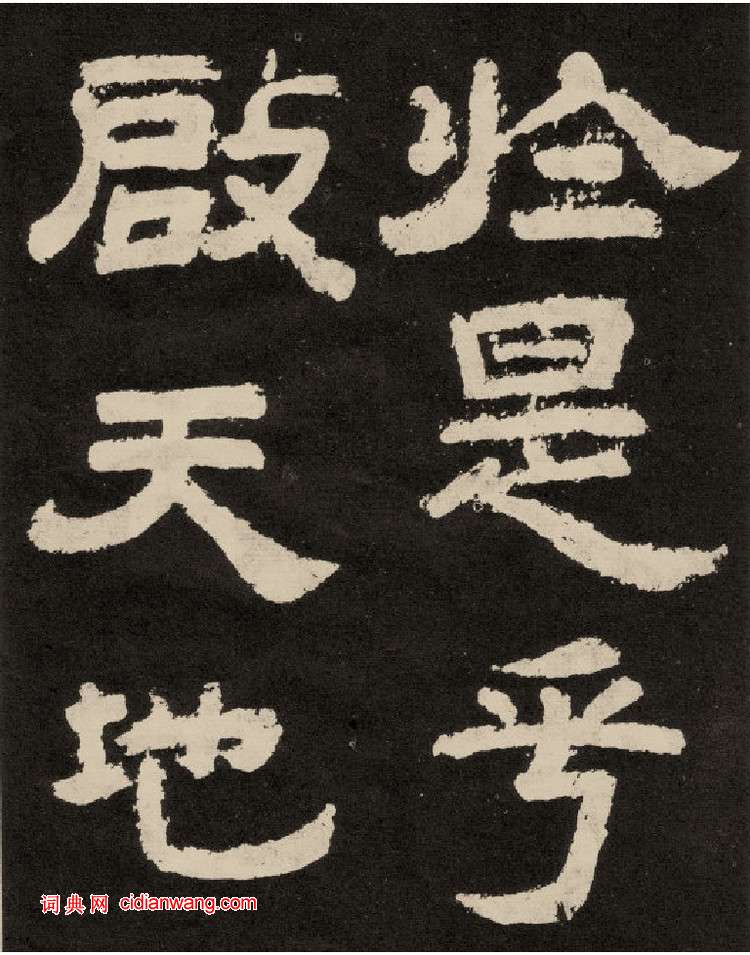 於是乎
啟天地
词典网 cidianwang.com